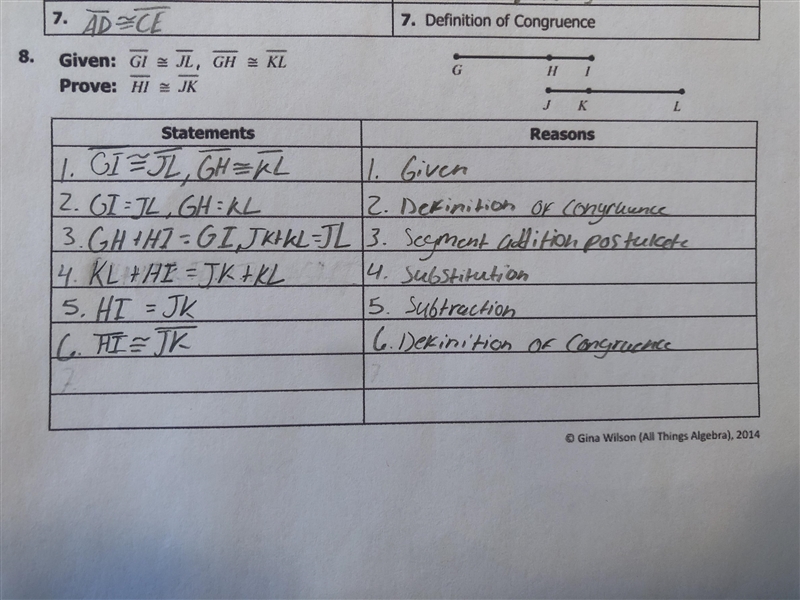 7. AD ≅ CE 7. Definition of Congruence
8. Given: GI ≅ JL, GH ≅ KL
Prove: HI ≅ JK
G H I
J K L
Statements Reasons
1. GI ≅ JL, GH ≅ KL 1. Given
2. GI = JL, GH = KL 2. Definition of Congruence
3. GH + HI = GI, JK + KL = JL 3. Segment addition postulate
4. KL + HI = JK + KL 4. Substitution
5. HI = JK 5. Subtraction
6. HI ≅ JK 6. Definition of Congruence
7 7
© Gina Wilson (All Things Algebra), 2014